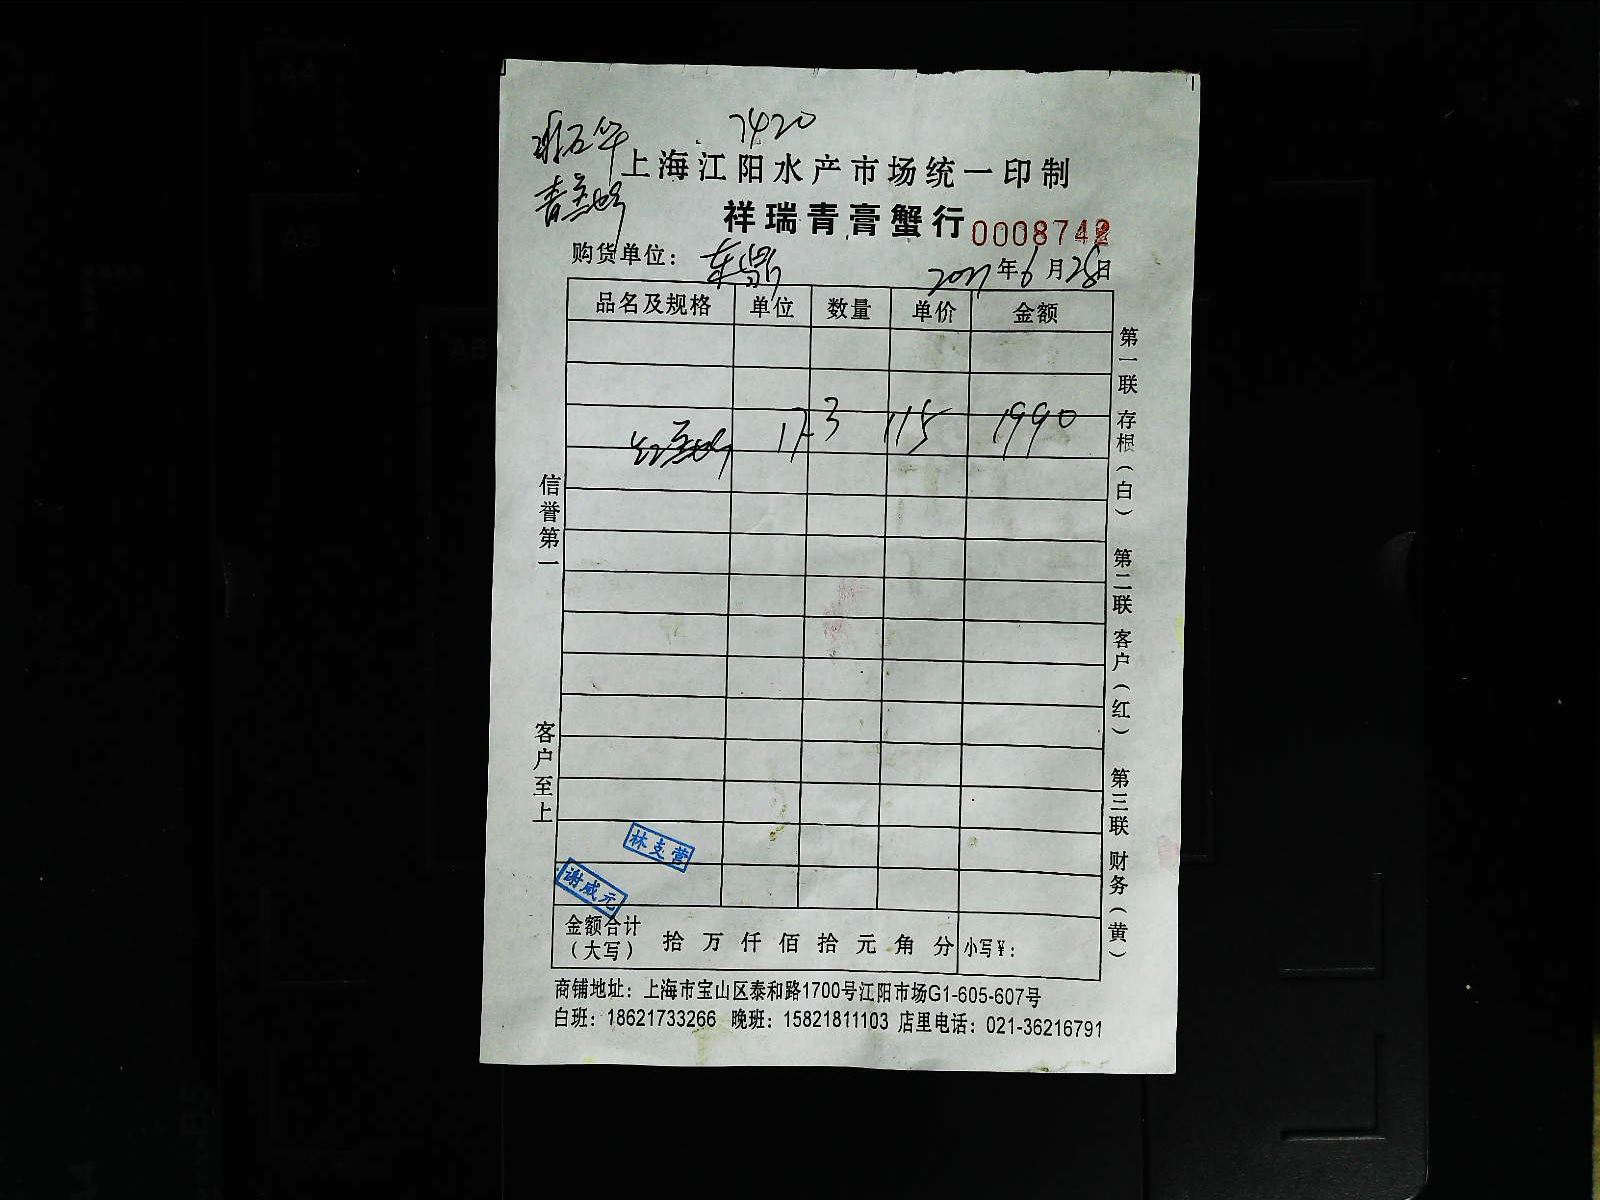 7420
上海江阳水产市场统一印制
祥瑞青膏蟹行 0008742
购货单位： 东鼎 2021年6月28日
品名及规格 单位 数量 单价 金额
17.3 115 1990
信誉第一
客户至上
第一联 存根（白） 第二联 客户（红） 第三联 财务（黄）
林支营
谢咸元
金额合计（大写） 拾 万 仟 佰 拾 元 角 分 小写¥：
商铺地址：上海市宝山区泰和路1700号江阳市场G1-605-607号
白班：18621733266 晚班：15821811103 店里电话：021-36216791